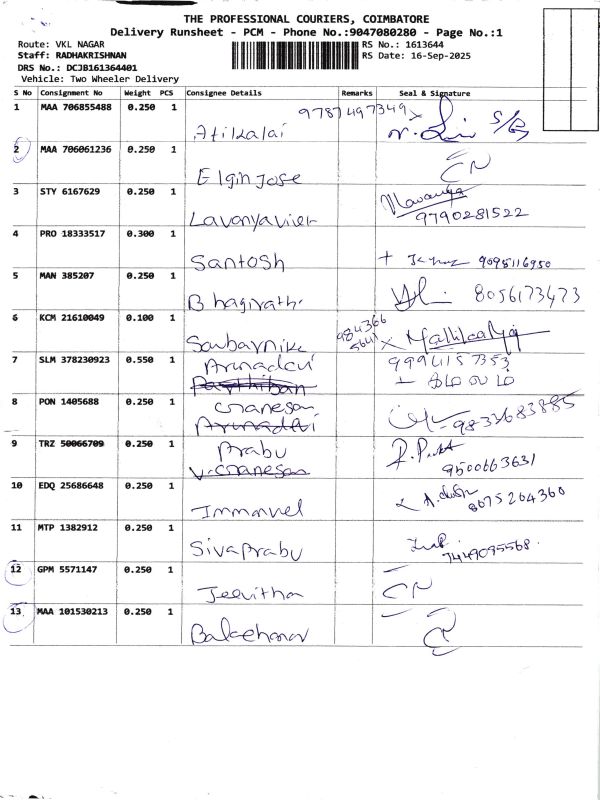 THE PROFESSIONAL COURIERS, COIMBATORE
Delivery Runsheet - PCM - Phone No.:9047080280 - Page No.:1
Route: VKL NAGAR
Staff: RADHAKRISHNAN
DRS No.: DCJB161364401
Vehicle: Two Wheeler Delivery
RS No.: 1613644
RS Date: 16-Sep-2025
S No Consignment No Weight PCS Consignee Details Remarks Seal & Signature
1 MAA 706855488 0.250 1 Atikalai 9787497349
2 MAA 706061236 0.250 1 Elgin Jose CN
3 STY 6167629 0.250 1 Lavanyavier 9790281522
4 PRO 18333517 0.300 1 Santosh 9095116950
5 MAN 385207 0.250 1 Bhagirathi 8056173473
6 KCM 21610049 0.100 1 984366
5641
7 SLM 378230923 0.550 1 Arunadevi 9994157353
Parthiban
8 PON 1405688 0.250 1 Gnanesan 9833683885
Arunadevi
9 TRZ 50066709 0.250 1 Prabu 9500663631
V. Gnanesan
10 EDQ 25686648 0.250 1 Immanvel 8075204360
11 MTP 1382912 0.250 1 Sivaprabu 7449095568
12 GPM 5571147 0.250 1 Jeevitha CN
13 MAA 101530213 0.250 1